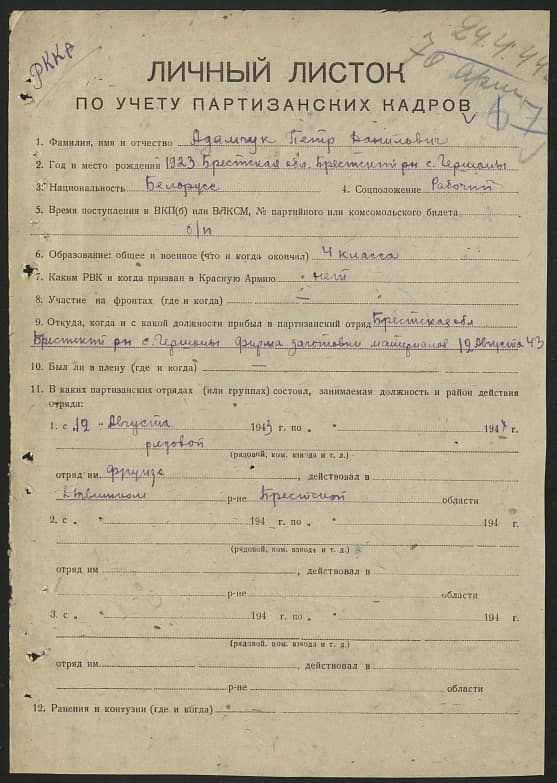 РККА
24.4.44
70 Арми
67
ЛИЧНЫЙ ЛИСТОК
ПО УЧЕТУ ПАРТИЗАНСКИХ КАДРОВ
1. Фамилия, имя и отчество Адамчук Петр Данилович
2. Год и место рождения 1923 Брестская обл. Бресткит рн с. Чернавчы
3. Национальность Белорусс 4. Соцположение Рабочий
5. Время поступления в ВКП(б) или ВЛКСМ, № партийного или комсомольского билета
б/п
6. Образование: общее и военное (что и когда окончил) 4 класса
7. Каким РВК и когда призван в Красную Армию нет
8. Участие на фронтах (где и когда) —
9. Откуда, когда и с какой должности прибыл в партизанский отряд Брестская обл
рн с. фирма заготовки материалов 12 Августа 43
10. Был ли в плену (где и когда) —
11. В каких партизанских отрядах (или группах) состоял, занимаемая должность и район действия
отряда:
1. с 12 " Августа 1943 г. по " 194 г.
рядовой
(рядовой, ком. взвода и т. д.)
отряд им. Фрунзе, действовал в
р-не Брестской области
2. с " " 194 г. по " " 194 г.
(рядовой, ком. взвода и т. д.)
отряд им , действовал в
р-не области
3. с " " 194 г. по " " 194 г.
(рядовой, ком. взвода и т. д.)
отряд им. , действовал в
р-не области
12. Ранения и контузии (где и когда)